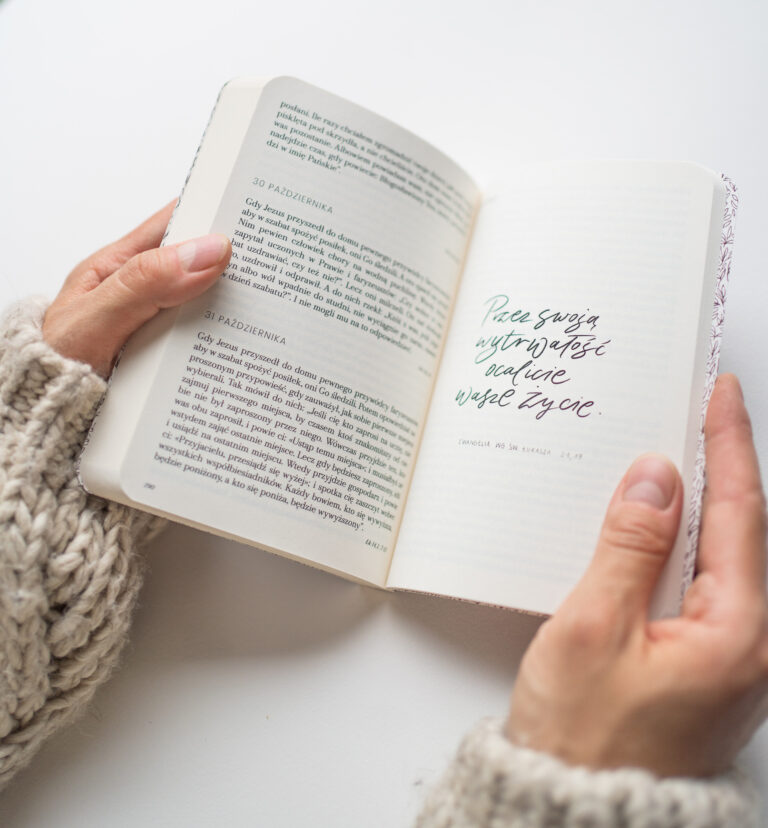 posłani. Ile razy chciałem zgromadzić twoje dzieci, jak
pisklęta pod skrzydła, a nie chcieliście. Oto dom
was pozostanie. Albowiem powiadam wam,
nadejdzie czas, gdy powiecie: Błogosławiony
dzi w imię Pańskie”.
30 PAŹDZIERNIKA
Gdy Jezus przyszedł do domu pewnego przywódcy
aby w szabat spożyć posiłek, oni Go śledzili. A oto
Nim pewien człowiek chory na wodną puchlinę.
zapytał uczonych w Prawie i faryzeuszów: „Czy
bat uzdrawiać, czy też nie?”. Lecz oni milczeli.
uzdrowił i odprawił. A do nich rzekł:
albo wół wpadnie do studni, nie wyciągnie go
w dzień szabatu?”. I nie mogli mu na to odpowiedzieć.
31 PAŹDZIERNIKA
Gdy Jezus przyszedł do domu pewnego przywódcy
aby w szabat spożyć posiłek, oni Go śledzili. Potem opowiedział
proszonym przypowieść, gdy zauważył, jak sobie pierwsze miejsca
wybierali. Tak mówił do nich: „Jeśli cię kto zaprosi na ucztę, nie
zajmuj pierwszego miejsca, by czasem ktoś znakomitszy od
bie nie był zaproszony przez niego. Wówczas przyjdzie ten, kto
was obu zaprosił, i powie ci: «Ustąp temu miejsca»; i musiałbyś ze
wstydem zająć ostatnie miejsce. Lecz gdy będziesz zaproszony, idź
i usiądź na ostatnim miejscu. Wtedy przyjdzie gospodarz i powie
ci: «Przyjacielu, przesiądź się wyżej»; i spotka cię zaszczyt wobec
wszystkich współbiesiadników. Każdy bowiem, kto się wywyższa,
będzie poniżony, a kto się poniża, będzie wywyższony”.
Przez swoją
wytrwałość
ocalicie
wasze życie.
EWANGELIA WG ŚW. ŁUKASZA 21, 19